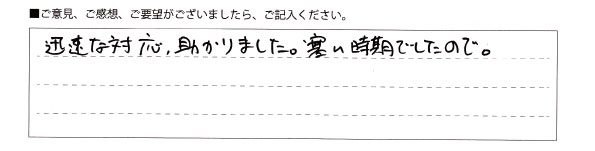 ■ご意見、ご感想、ご要望がございましたら、ご記入ください。
迅速な対応,助かりました。寒い時期でしたので。